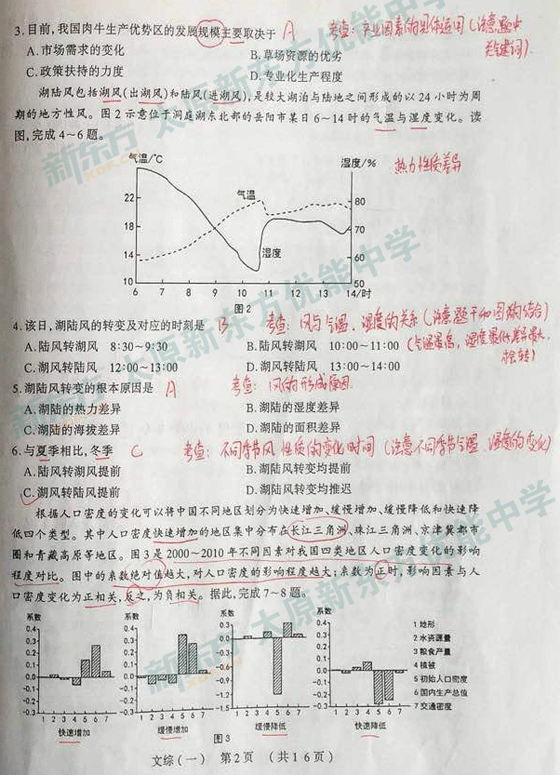 3.目前,我国肉牛生产优势区的发展规模主要取决于 A 考查:产业因素的具体运用(注意题中
关键词)
A.市场需求的变化 B.草场资源的优劣
C.政策扶持的力度 D.专业化生产程度
湖陆风包括湖风(出湖风)和陆风(进湖风),是较大湖泊与陆地之间形成的以24小时为周
期的地方性风。图2示意位于洞庭湖东北部的岳阳市某日6~14时的气温与湿度变化。读
图,完成4~6题。
气温/℃ 湿度/% 热力性质差异
22 18 14 10
气温
湿度
80 70 60 50
6 7 8 9 10 11 12 13 14/时
图2
4.该日,湖陆风的转变及对应的时刻是 B 考查:风与气温、湿度的关系(注意题干和图的结合)
A.陆风转湖风 8:30~9:30 B.陆风转湖风 10:00~11:00
C.湖风转陆风 12:00~13:00 D.湖风转陆风 13:00~14:00
5.湖陆风转变的根本原因是 A 考查:风的形成原因
A.湖陆的热力差异 B.湖陆的湿度差异
C.湖陆的海拔差异 D.湖陆的面积差异
6.与夏季相比,冬季 C 考查:不同季节风性质的变化时间(注意不同季节气温、湿度的变化)
A.陆风转湖风提前 B.湖陆风转变均提前
C.湖风转陆风提前 D.湖陆风转变均推迟
根据人口密度的变化可以将中国不同地区划分为快速增加、缓慢增加、缓慢降低和快速降
低四个类型。其中人口密度快速增加的地区集中分布在长江三角洲、珠江三角洲、京津冀都市
圈和青藏高原等地区。图3是2000~2010年不同因素对我国四类地区人口密度变化的影响
程度对比。图中的系数绝对值越大,对人口密度的影响程度越大;系数为正时,影响因素与人
口密度变化为正相关,反之,为负相关。据此,完成7~8题。
系数 系数 系数 系数
1 地形
2 水资源量
3 粮食产量
4 植被
5 初始人口密度
6 国内生产总值
7 交通密度
1 2 3 4 5 6 7
快速增加 缓慢增加 缓慢降低 快速降低
图3
文综(一) 第2页 (共16页)
新东方
XDF.CN
太原新东方优能中学